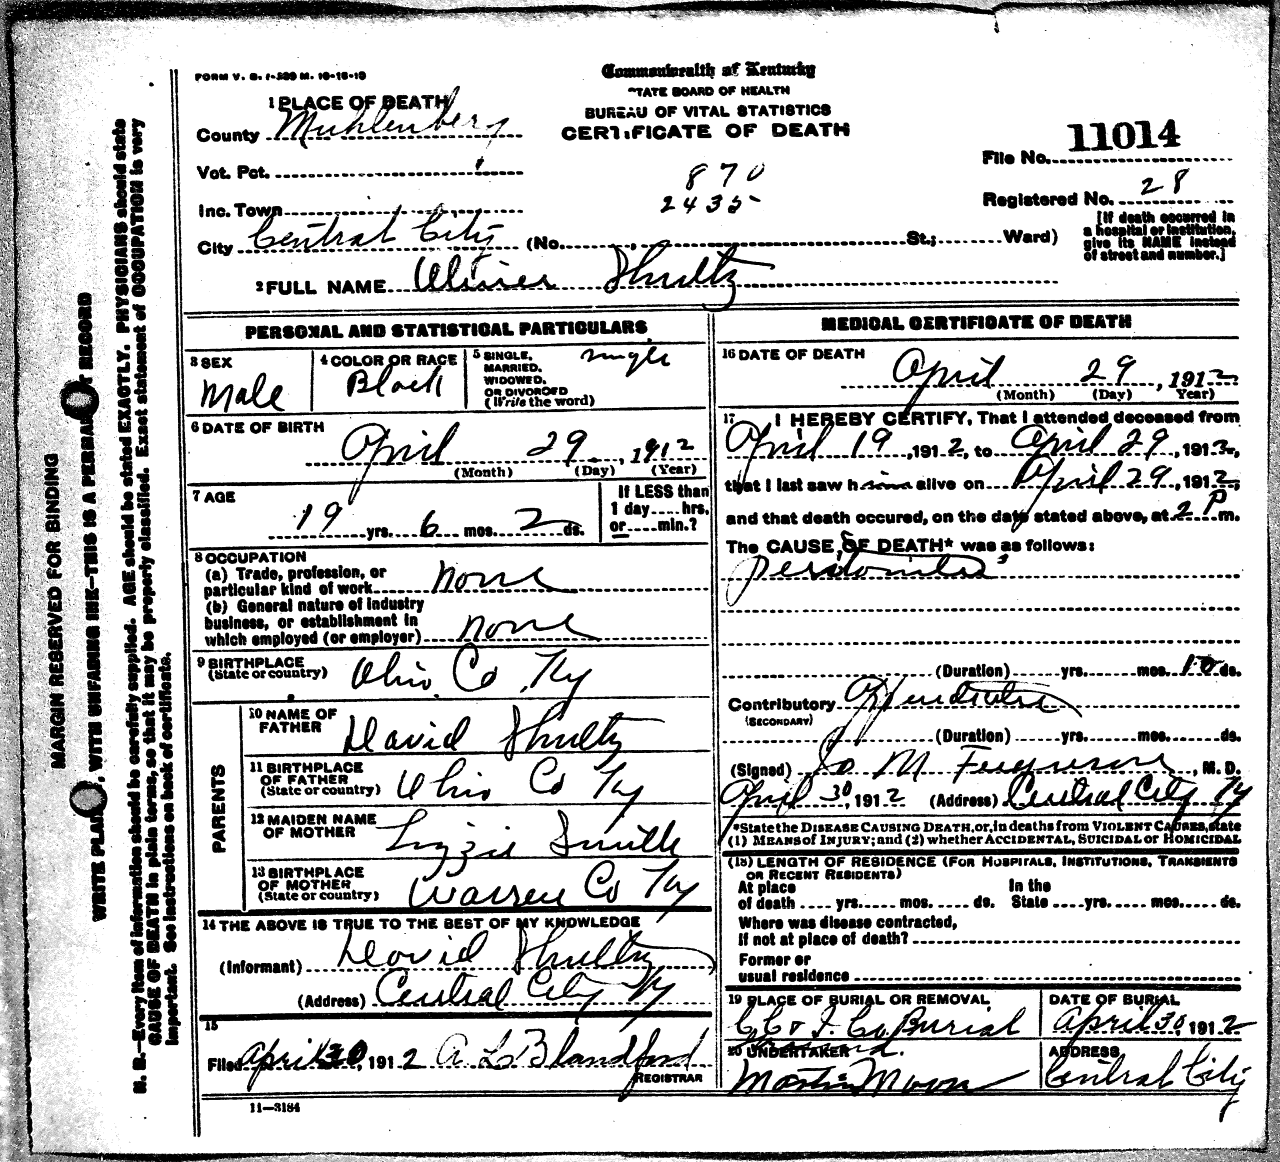 FORM V. S. 1-229 M. 10-16-10
Commonwealth of Kentucky
STATE BOARD OF HEALTH
BUREAU OF VITAL STATISTICS
CERTIFICATE OF DEATH
1 PLACE OF DEATH
County Muhlenberg
Vot. Pct.
Inc. Town
City Central City (No. St.; Ward)
870
2435
File No. 11014
Registered No. 28
[If death occurred in
a hospital or institution,
give its NAME instead
of street and number.]
2 FULL NAME Shultz
PERSONAL AND STATISTICAL PARTICULARS
3 SEX
Male
4 COLOR OR RACE
Black
5 SINGLE,
MARRIED,
WIDOWED,
OR DIVORCED
(Write the word)
single
6 DATE OF BIRTH
April 29, 1912
(Month) (Day) (Year)
7 AGE
19 yrs. 6 mos. 2 ds.
If LESS than
1 day hrs.
or min.?
8 OCCUPATION
(a) Trade, profession, or
particular kind of work none
(b) General nature of industry
business, or establishment in
which employed (or employer) none
9 BIRTHPLACE
(State or country) Ohio Co Ky
PARENTS
10 NAME OF
FATHER David Shultz
11 BIRTHPLACE
OF FATHER
(State or country) Ohio Co Ky
12 MAIDEN NAME
OF MOTHER Lizzie Smith
13 BIRTHPLACE
OF MOTHER
(State or country) Warren Co Ky
14 THE ABOVE IS TRUE TO THE BEST OF MY KNOWLEDGE
(Informant) David Shultz
(Address) Central City Ky
15
Filed April 30, 1912 A L Blandford
REGISTRAR
11-3184
MEDICAL CERTIFICATE OF DEATH
16 DATE OF DEATH
April 29, 1912
(Month) (Day) Year)
17 I HEREBY CERTIFY, That I attended deceased from
April 19, 1912, to April 29, 1912,
that I last saw him alive on April 29, 1912,
and that death occured, on the date stated above, at 2 P m.
The CAUSE OF DEATH* was as follows:
peritonitis
(Duration) yrs. mos. 10 ds.
Contributory Apendicitis
(SECONDARY)
(Duration) yrs. mos. ds.
(Signed) Jo M Ferguson, M. D.
April 30, 1912 (Address) Central City Ky
*State the DISEASE CAUSING DEATH, or, in deaths from VIOLENT CAUSES, state
(1) MEANS OF INJURY; and (2) whether ACCIDENTAL, SUICIDAL OR HOMICIDAL
(18) LENGTH OF RESIDENCE (FOR HOSPITALS, INSTITUTIONS, TRANSIENTS
OR RECENT RESIDENTS)
At place In the
of death yrs. mos. ds. State yrs. mos. ds.
Where was disease contracted,
If not at place of death?
Former or
usual residence
19 PLACE OF BURIAL OR REMOVAL
Co Burial
Ground.
DATE OF BURIAL
April 30 1912
20 UNDERTAKER
Martin Moore
ADDRESS
Central City
MARGIN RESERVED FOR BINDING
WRITE PLAINLY, WITH UNFADING INK—THIS IS A PERMANENT RECORD
N. B.—Every item of information should be carefully supplied. AGE should be stated EXACTLY. PHYSICIANS should state
CAUSE OF DEATH in plain terms, so that it may be properly classified. Exact statement of OCCUPATION is very
important. See instructions on back of certificate.